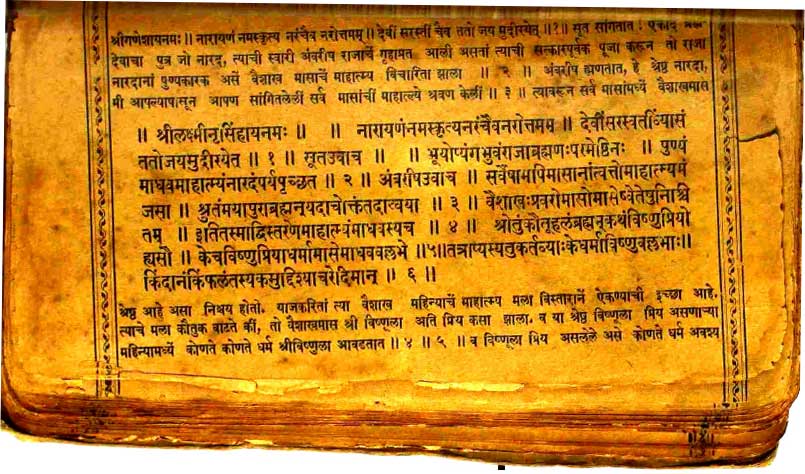 श्रीगणेशायनमः॥ नारायणं नमस्कृत्य नरंचैव नरोत्तमम्॥ देवीं सरस्तीं चैव ततो जय मुदीरयेत्॥१॥ सूत सांगतात! एकदां
देवाचा पुत्र जो नारद, त्याची स्वारी अंबरीष राजाचें गृहाप्रत आली असतां त्याची सत्कारपूर्वक पूजा करून तो राजा
नारदानां पुण्यकारक असें वैशाख मासाचें माहात्म्य विचारिता झाला ॥ २ ॥ अंबरीष ह्मणतात, हे श्रेष्ठ नारदा,
मी आपल्यापासून आपण सांगितलेलीं सर्व मासांचीं माहात्म्यें श्रवण केलीं ॥ ३ ॥ त्यावरून सर्व मासांमध्यें वैशाखमास
॥ श्रीलक्ष्मीनृसिंहायनमः ॥ ॥ नारायणंनमस्कृत्यनरंचैवनरोत्तमम ॥ देवींसरस्वतींव्यासं
ततोजयमुदीरयेत ॥ १ ॥ सूतउवाच ॥ ॥ भूयोप्यंगभुवंराजाब्रह्मणःपरमेष्ठिनः ॥ पुण्यं
माधवमाहात्म्यंनारदंपर्यपृच्छत ॥ २ ॥ अंबरीषउवाच ॥ सर्वेषामपिमासानांत्वत्तोमाहात्म्यमं
जसा ॥ श्रुतंमयापुराब्रह्मन्यदाचोक्तंतदात्वया ॥ ३ ॥ वैशाखःप्रवरोमासोमासेष्वेतेषुनिश्चि
तम् ॥ इतितस्माद्विस्तरेणमाहात्म्यंमाधवस्यच ॥ ४ ॥ श्रोतुंकौतूहलंब्रह्मन्कथंविष्णुप्रियो
ह्यसौ ॥ केचविष्णुप्रियाधर्मामासेमाधववल्लभे ॥५॥तत्राप्यस्यतुकर्तव्याःकेधर्माविष्णुवल्लभाः॥
किंदानंकिंफलंतस्यकमुद्दिश्याचरेदिमान् ॥ ६ ॥
श्रेष्ठ आहे असा निश्चय होतो. याजकरितां त्या वैशाख महिन्याचें माहात्म्य मला विस्तारानें ऐकण्याची इच्छा आहे.
त्याचे मला कौतुक वाटते कीं, तो वैशाखमास श्री विष्णूला अति प्रिय कसा झाला. व या श्रेष्ठ विष्णूला प्रिय असणाऱ्या
महिन्यामध्यें कोणते कोणते धर्म श्रीविष्णुला आवडतात ॥ ४ ॥ ५ ॥ व विष्णूला प्रिय असलेले असे कोणते धर्म अवश्य